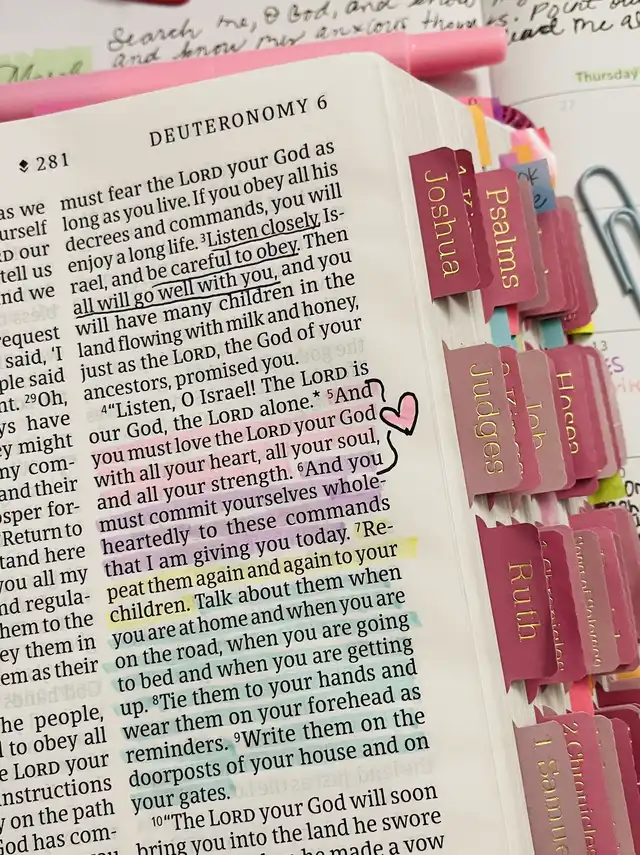 Search me, O God, and know m
and know my anxious thou s. Point ou
ead me as
March
Thursday
27
13
DEUTERONOMY 6
281
as we
urself
D our
tell us
nd we
request
said, ‘I
ple said
nt. 29Oh,
ys have
ey might
ny com-
and their
osper for-
Return to
tand here
you all my
nd regula-
hem to the
ey them in
em as their
he people,
l to obey all
e LORD your
nstructions
y on the path
God has com-
must fear the LORD your God as
long as you live. If you obey all his
decrees and commands, you will
enjoy a long life. 3Listen closely, Is-
rael, and be careful to obey. Then
all will go well with you, and you
will have many children in the
land flowing with milk and honey,
just as the LORD, the God of your
ancestors, promised you.
4“Listen, O Israel! The LORD is
our God, the LORD alone.* 5And
you must love the LORD your God
with all your heart, all your soul,
and all your strength. 6And you
must commit yourselves whole-
heartedly to these commands
that I am giving you today. 7Re-
peat them again and again to your
children. Talk about them when
you are at home and when you are
on the road, when you are going
to bed and when you are getting
up. 8Tie them to your hands and
wear them on your forehead as
reminders. 9Write them on the
doorposts of your house and on
your gates.
10“The LORD your God will soon
bring you into the land he swore
he made a vow
Joshua
Psalms
Judges
Job
Hosea
Ruth
1 Samue
2 Chronicles